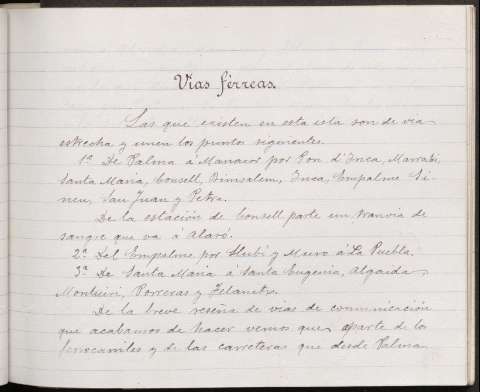 Vias férreas.
Las que existen en esta isla son de via
estrecha y unen los puntos siguientes.
1ª De Palma á Manacor por Pon d'Inca, Marratxi,
Santa Maria, Consell, Binisalem, Inca, Empalme Si-
neu, San Juan y Petra.
De la estación de Consell parte un tranvia de
sangre que va á Alaró.
2ª Del Empalme por Llubi y Muro á La Puebla.
3ª De Santa Maria á Santa Eugenia, Algaida
Montuiri, Porreras y Felanitx.
De la breve reseña de vias de comunicación
que acabamos de hacer vemos que aparte de los
ferrocarriles y de las carreteras que desde Palma